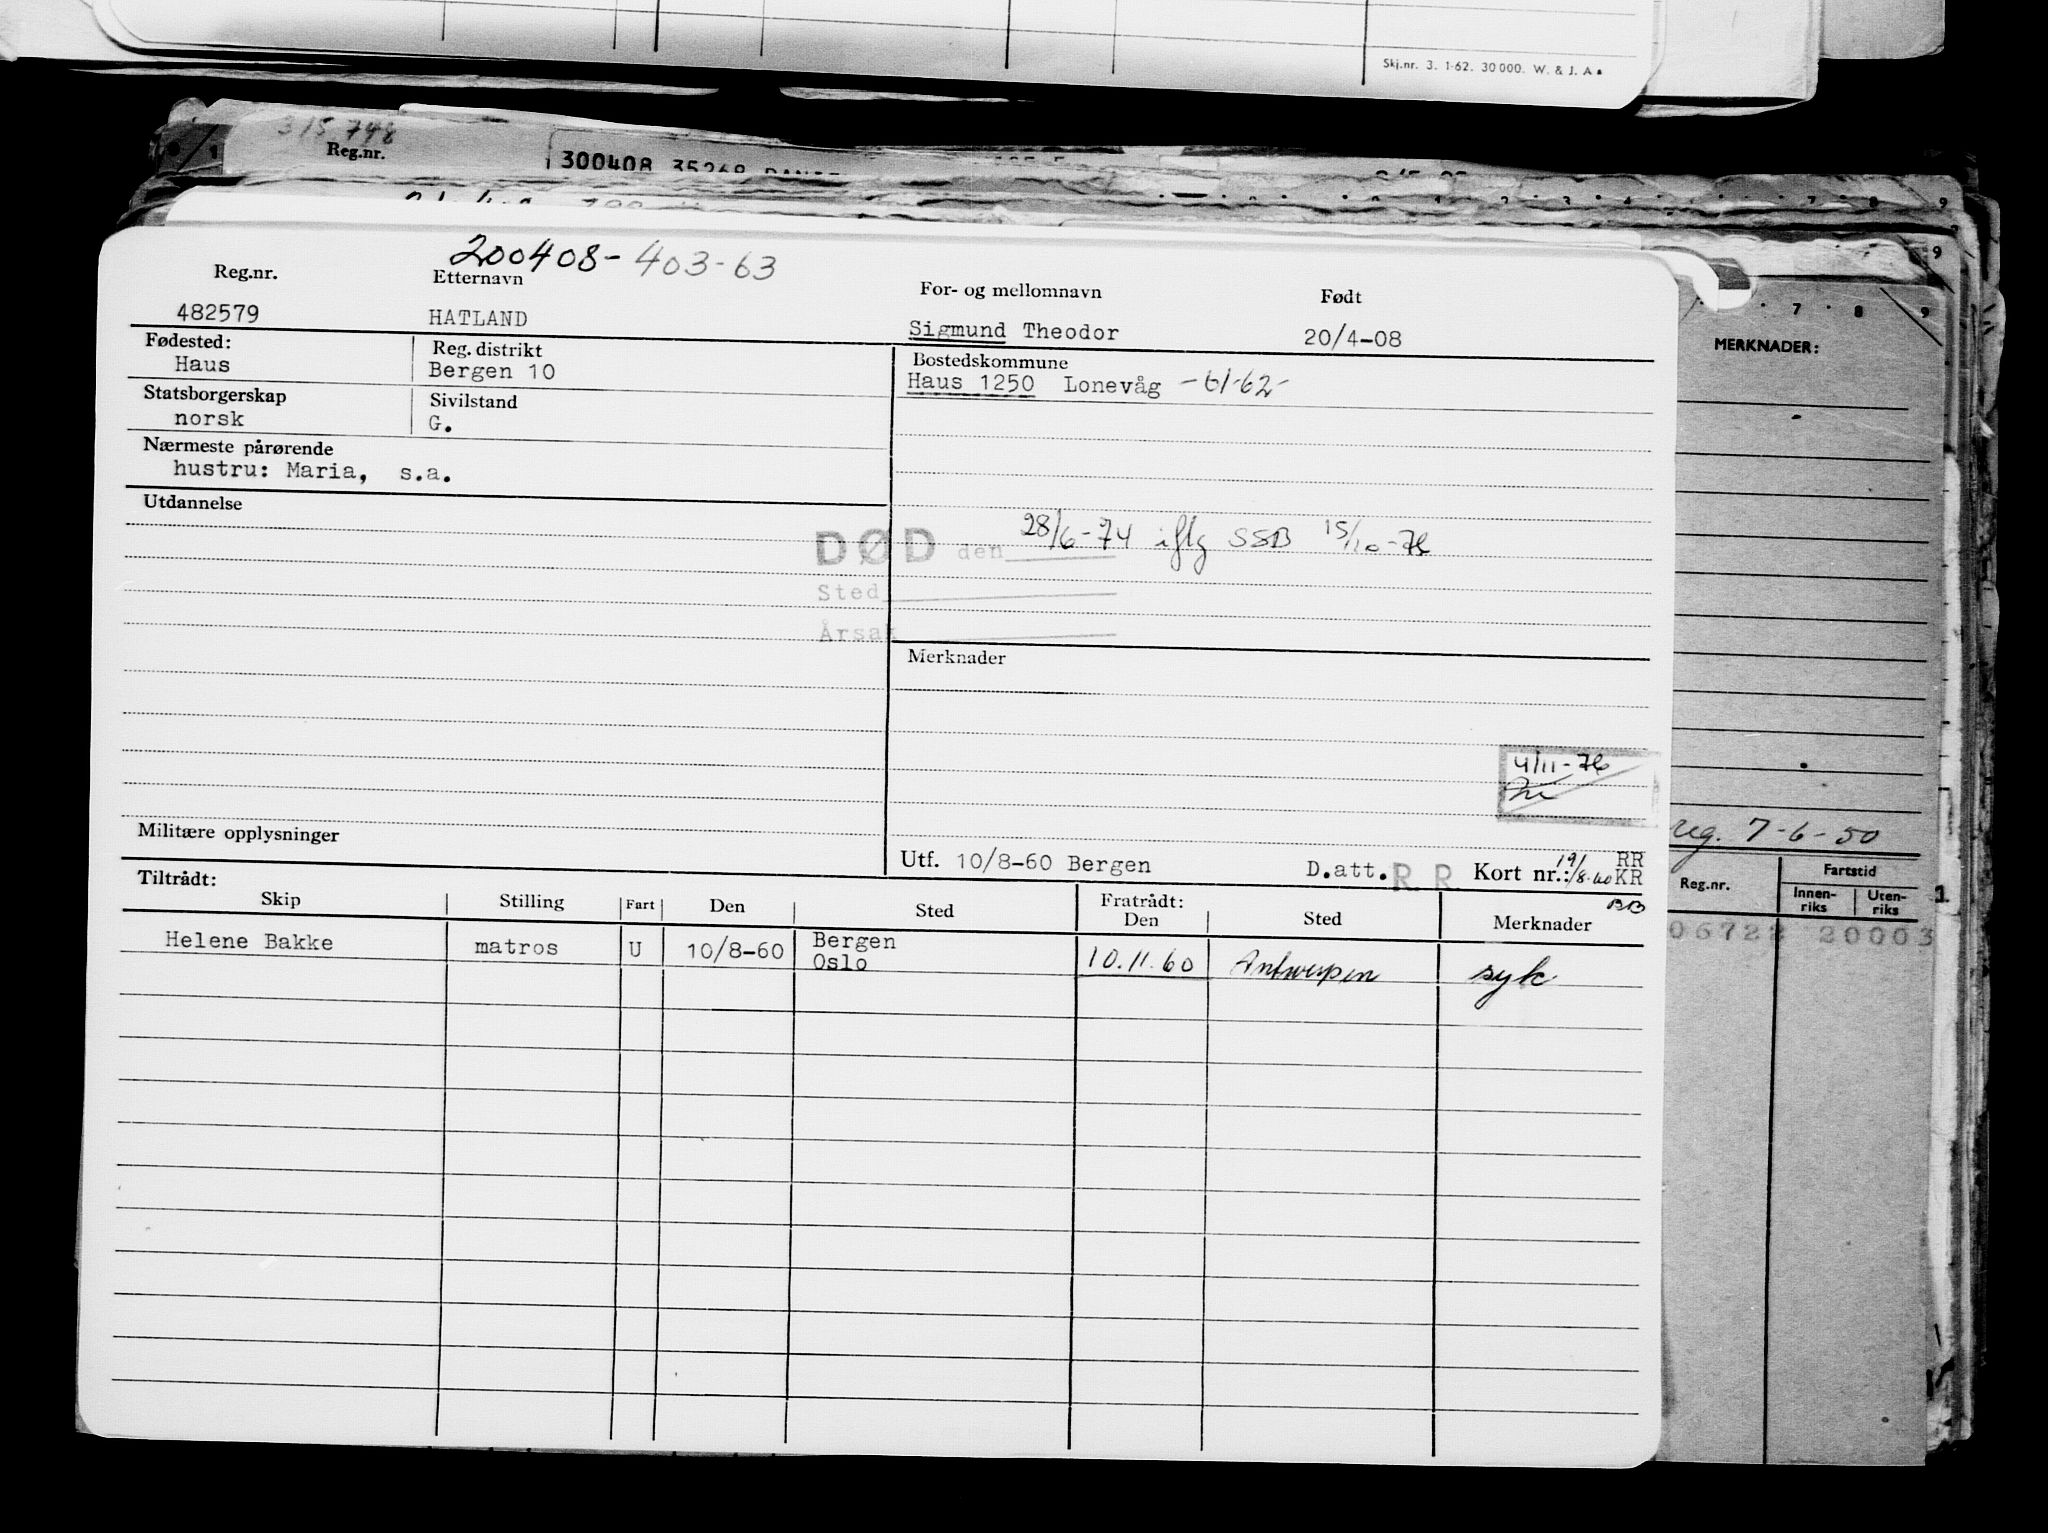 Skj.nr. 3. 1-62. 30 000. W. & J. A
315.748
Reg.nr.
300408 35268
200408-403-63
Reg.nr. Etternavn For- og mellomnavn Født
482579 HATLAND Sigmund Theodor 20/4-08
Fødested: Reg. distrikt Bostedskommune
Haus Bergen 10 Haus 1250 Lonevåg -61-62-
Statsborgerskap Sivilstand
norsk G.
Nærmeste pårørende
hustru: Maria, s.a.
Utdannelse
DØD den 28/6-74 iflg SSB 15/10-76
Sted
Årsak
Merknader
4/11-76
Militære opplysninger
Utf. 10/8-60 Bergen D.att. R. R. Kort nr.: 19/8-60 RR
KR
BB
Tiltrådt: Fratrådt:
Skip Stilling Fart Den Sted Den Sted Merknader
Helene Bakke matros U 10/8-60 Bergen
Oslo 10.11.60 Antwerpen syk
7 8 9
MERKNADER:
reg. 7-6-50
Reg.nr. Fartstid
Innen-
riks Uten-
riks
06722 20003